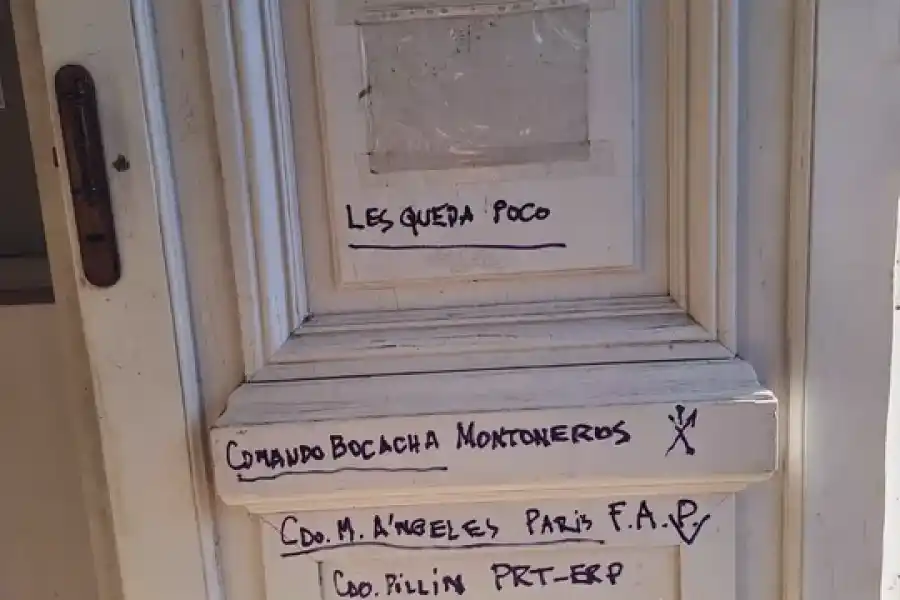 LES QUEDA POCO
COMANDO BOCACHA MONTONEROS
CDO. M. A'NGELES PARIS F.A.P.
CDO. PILLIN PRT-ERP